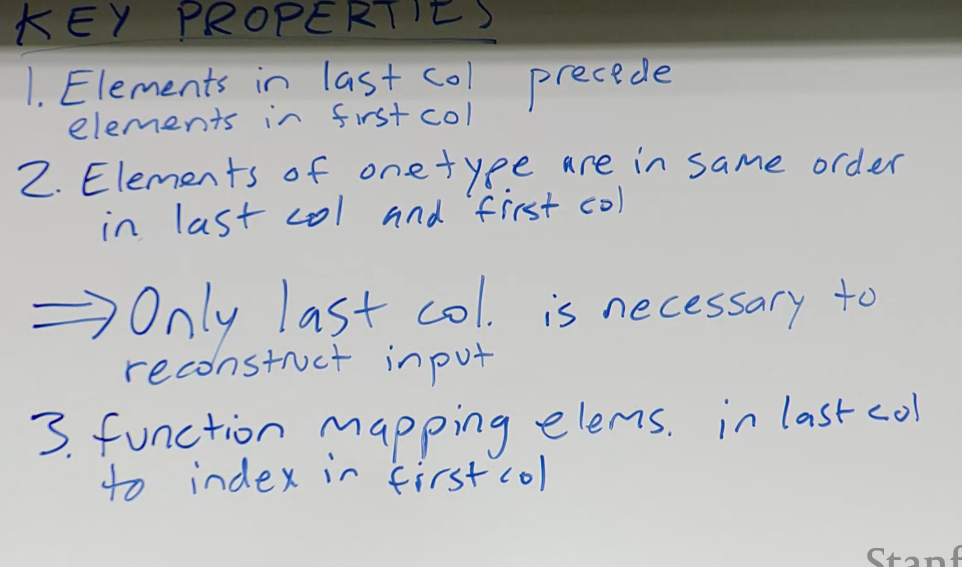 KEY PROPERTIES
1. Elements in last col precede
elements in first col
2. Elements of one type are in same order
in last col and first col
⟹ Only last col. is necessary to
reconstruct input
3. function mapping elems. in last col
to index in first col
Stanf